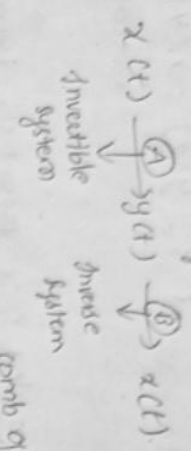 x(t) —(A)→ y(t) —(B)→ x(t).
Invertible
System
Inverse
System
comb of